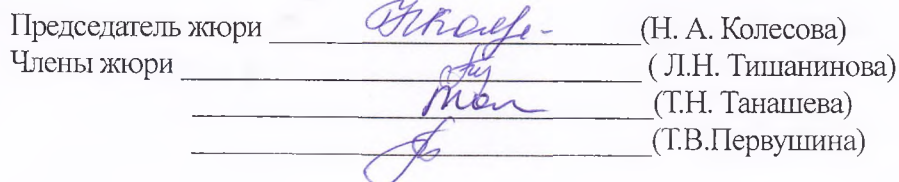 Председатель жюри (Н. А. Колесова)
Члены жюри ( Л.Н. Тишанинова)
(Т.Н. Танашева)
(Т.В.Первушина)